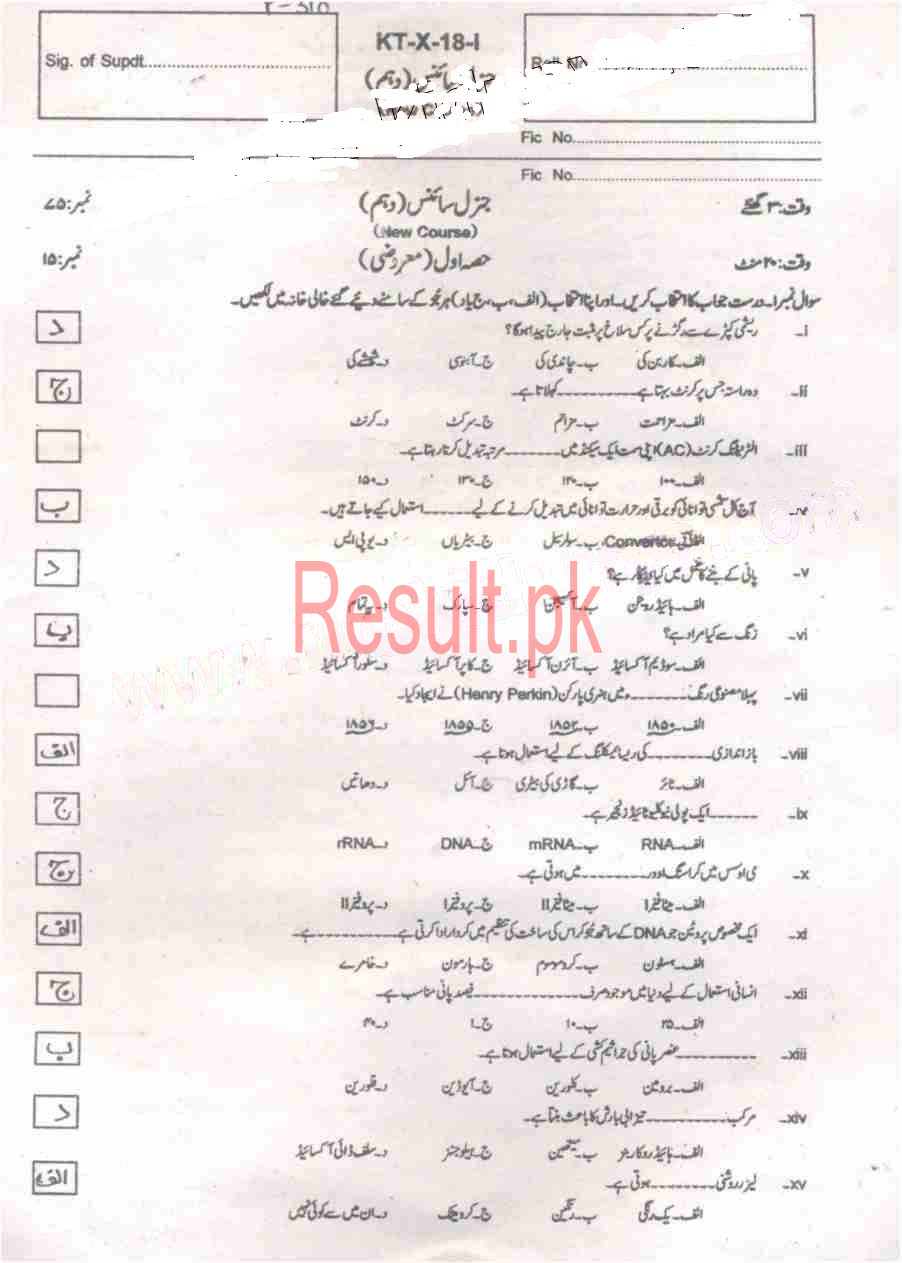 KT-X-18-I
Sig. of Supdt.
جنرل سائنس (دہم)
Fic No.
Fic No.
وقت: ۳ گھنٹے جنرل سائنس (دہم) نمبر: ۷۵
(New Course)
وقت: ۲۰ منٹ حصہ اول (معروضی) نمبر: ۱۵
سوال نمبر ا۔ درست جواب کا انتخاب کریں۔ اور اپنا انتخاب (الف، ب، ج یا د) ہر جُز کے سامنے دیئے گئے خالی خانہ میں لکھیں۔
i۔ ریشمی کپڑے سے رگڑنے پر کس سلاخ پر مثبت چارج پیدا ہوگا؟ د
الف۔ کاربن کی ب۔ چاندی کی ج۔ آبنوسی د۔ شیشے کی
ii۔ وہ راستہ جس پر کرنٹ بہتا ہے ______ کہلاتا ہے۔ ج
الف۔ مزاحمت ب۔ مزاحم ج۔ سرکٹ د۔ کرنٹ
iii۔ الٹرنیٹنگ کرنٹ (AC) اپنی سمت ایک سیکنڈ میں ______ مرتبہ تبدیل کرتا رہتا ہے۔
الف۔ ۱۰۰ ب۔ ۱۲۰ ج۔ ۱۳۰ د۔ ۱۵۰
iv۔ آج کل شمسی توانائی کو برقی اور حرارت توانائی میں تبدیل کرنے کے لیے ______ استعمال کیے جاتے ہیں۔ ب
الف۔ Convertor ب۔ سولر سیل ج۔ بیٹریاں د۔ یو پی ایس
v۔ پانی کے بننے کا عمل میں کیا درکار ہے؟ د
الف۔ ہائیڈروجن ب۔ آکسیجن ج۔ سپارک د۔ یہ تمام
vi۔ زنگ سے کیا مراد ہے؟ ب
الف۔ سوڈیم آکسائیڈ ب۔ آئرن آکسائیڈ ج۔ کاپر آکسائیڈ د۔ سلور آکسائیڈ
vii۔ پہلا مصنوعی رنگ ______ء میں ہنری پارکن (Henry Perkin) نے ایجاد کیا۔
الف۔ ۱۸۵۰ ب۔ ۱۸۵۲ ج۔ ۱۸۵۵ د۔ ۱۸۵۶
Result.pk
viii۔ باز اندازی ______ کی ریسائیکلنگ کے لیے استعمال ہوتا ہے۔ الف
الف۔ ٹائر ب۔ گاڑی کی بیٹری ج۔ آئل د۔ دھاتیں
ix۔ ______ ایک پولی نیوکلیوٹائیڈ زنجیر ہے۔ ج
الف۔ RNA ب۔ mRNA ج۔ DNA د۔ rRNA
x۔ می اوسس میں کراسنگ اوور ______ میں ہوتی ہے۔ ج
الف۔ میٹافیزI ب۔ میٹافیزII ج۔ پروفیزI د۔ پروفیزII
xi۔ ایک مخصوص پروٹین جو DNA کے ساتھ جُڑ کر اس کی ساخت کی تنظیم میں کردار ادا کرتی ہے ______ ہے۔ الف
الف۔ ہسٹون ب۔ کروموسوم ج۔ ہارمون د۔ خامرے
xii۔ انسانی استعمال کے لیے دنیا میں موجود صرف ______ فیصد پانی مناسب ہے۔ ج
الف۔ ۲۵ ب۔ ۱۰ ج۔ ۱ د۔ ۴۰
xiii۔ ______ عنصر پانی کی جراثیم کشی کے لیے استعمال ہوتا ہے۔ ب
الف۔ برومین ب۔ کلورین ج۔ آیوڈین د۔ فلورین
xiv۔ مرکب ______ تیزابی بارش کا باعث بنتا ہے۔ د
الف۔ ہائیڈروکاربنز ب۔ میتھین ج۔ ہیلوجنز د۔ سلفر ڈائی آکسائیڈ
xv۔ لیزر روشنی ______ ہوتی ہے۔ الف
الف۔ یک رنگی ب۔ رنگین ج۔ کرومیٹک د۔ ان میں سے کوئی نہیں